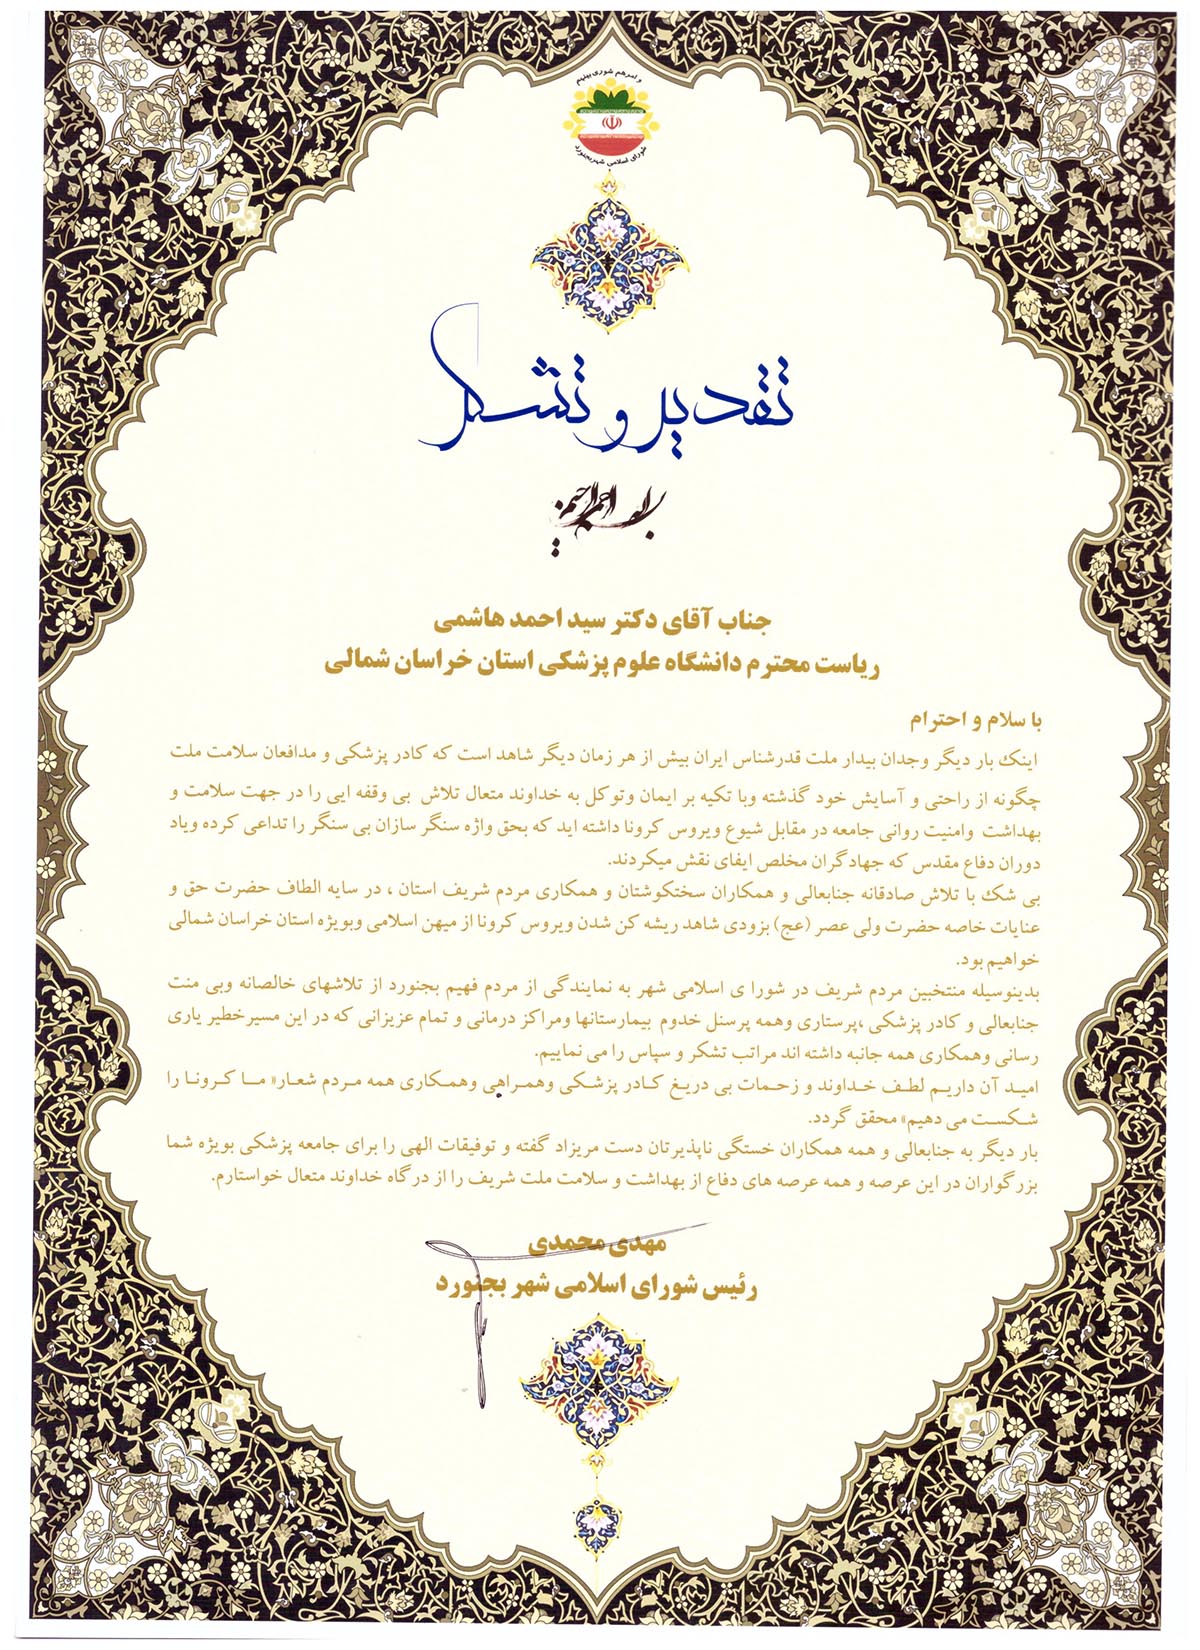 و امرهم شوری بینهم
شورای اسلامی شهر بجنورد
تقدیر و تشکر
بسم الله الرحمن الرحیم
جناب آقای دکتر سید احمد هاشمی
ریاست محترم دانشگاه علوم پزشکی استان خراسان شمالی
با سلام و احترام
اینک بار دیگر وجدان بیدار ملت قدرشناس ایران بیش از هر زمان دیگر شاهد است که کادر پزشکی و مدافعان سلامت ملت
چگونه از راحتی و آسایش خود گذشته وبا تکیه بر ایمان وتوکل به خداوند متعال تلاش بی وقفه ایی را در جهت سلامت و
بهداشت وامنیت روانی جامعه در مقابل شیوع ویروس کرونا داشته اید که بحق واژه سنگر سازان بی سنگر را تداعی کرده ویاد
دوران دفاع مقدس که جهادگران مخلص ایفای نقش میکردند.
بی شک با تلاش صادقانه جنابعالی و همکاران سختکوشتان و همکاری مردم شریف استان ، در سایه الطاف حضرت حق و
عنایات خاصه حضرت ولی عصر (عج) بزودی شاهد ریشه کن شدن ویروس کرونا از میهن اسلامی وبویژه استان خراسان شمالی
خواهیم بود.
بدینوسیله منتخبین مردم شریف در شورا ی اسلامی شهر به نمایندگی از مردم فهیم بجنورد از تلاشهای خالصانه وبی منت
جنابعالی و کادر پزشکی ،پرستاری وهمه پرسنل خدوم بیمارستانها ومراکز درمانی و تمام عزیزانی که در این مسیرخطیر یاری
رسانی وهمکاری همه جانبه داشته اند مراتب تشکر و سپاس را می نماییم.
امید آن داریم لطف خداوند و زحمات بی دریغ کادر پزشکی وهمراهی وهمکاری همه مردم شعار« ما کرونا را
شکست می دهیم» محقق گردد.
بار دیگر به جنابعالی و همه همکاران خستگی ناپذیرتان دست مریزاد گفته و توفیقات الهی را برای جامعه پزشکی بویژه شما
بزرگواران در این عرصه و همه عرصه های دفاع از بهداشت و سلامت ملت شریف را از درگاه خداوند متعال خواستارم.
مهدی محمدی
رئیس شورای اسلامی شهر بجنورد